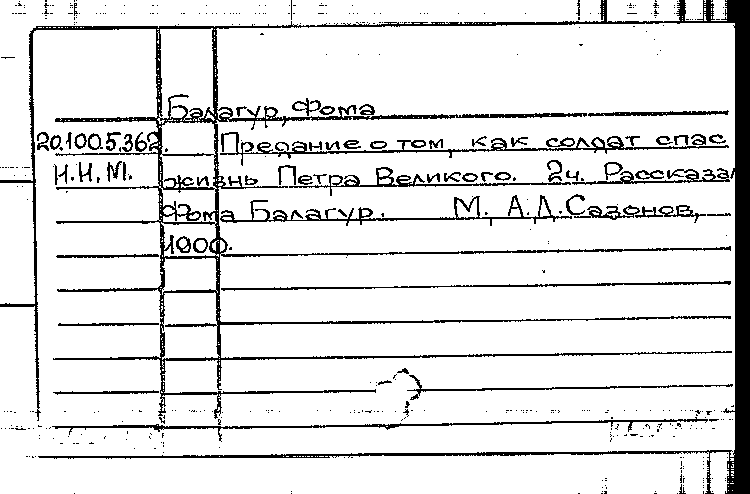 Балагур, Фома
20.100.5.362. Предание о том, как солдат спас
Н.Н.М. жизнь Петра Великого. 2ч. Рассказал
Фома Балагур. М., А.Д. Сазонов,
1900.